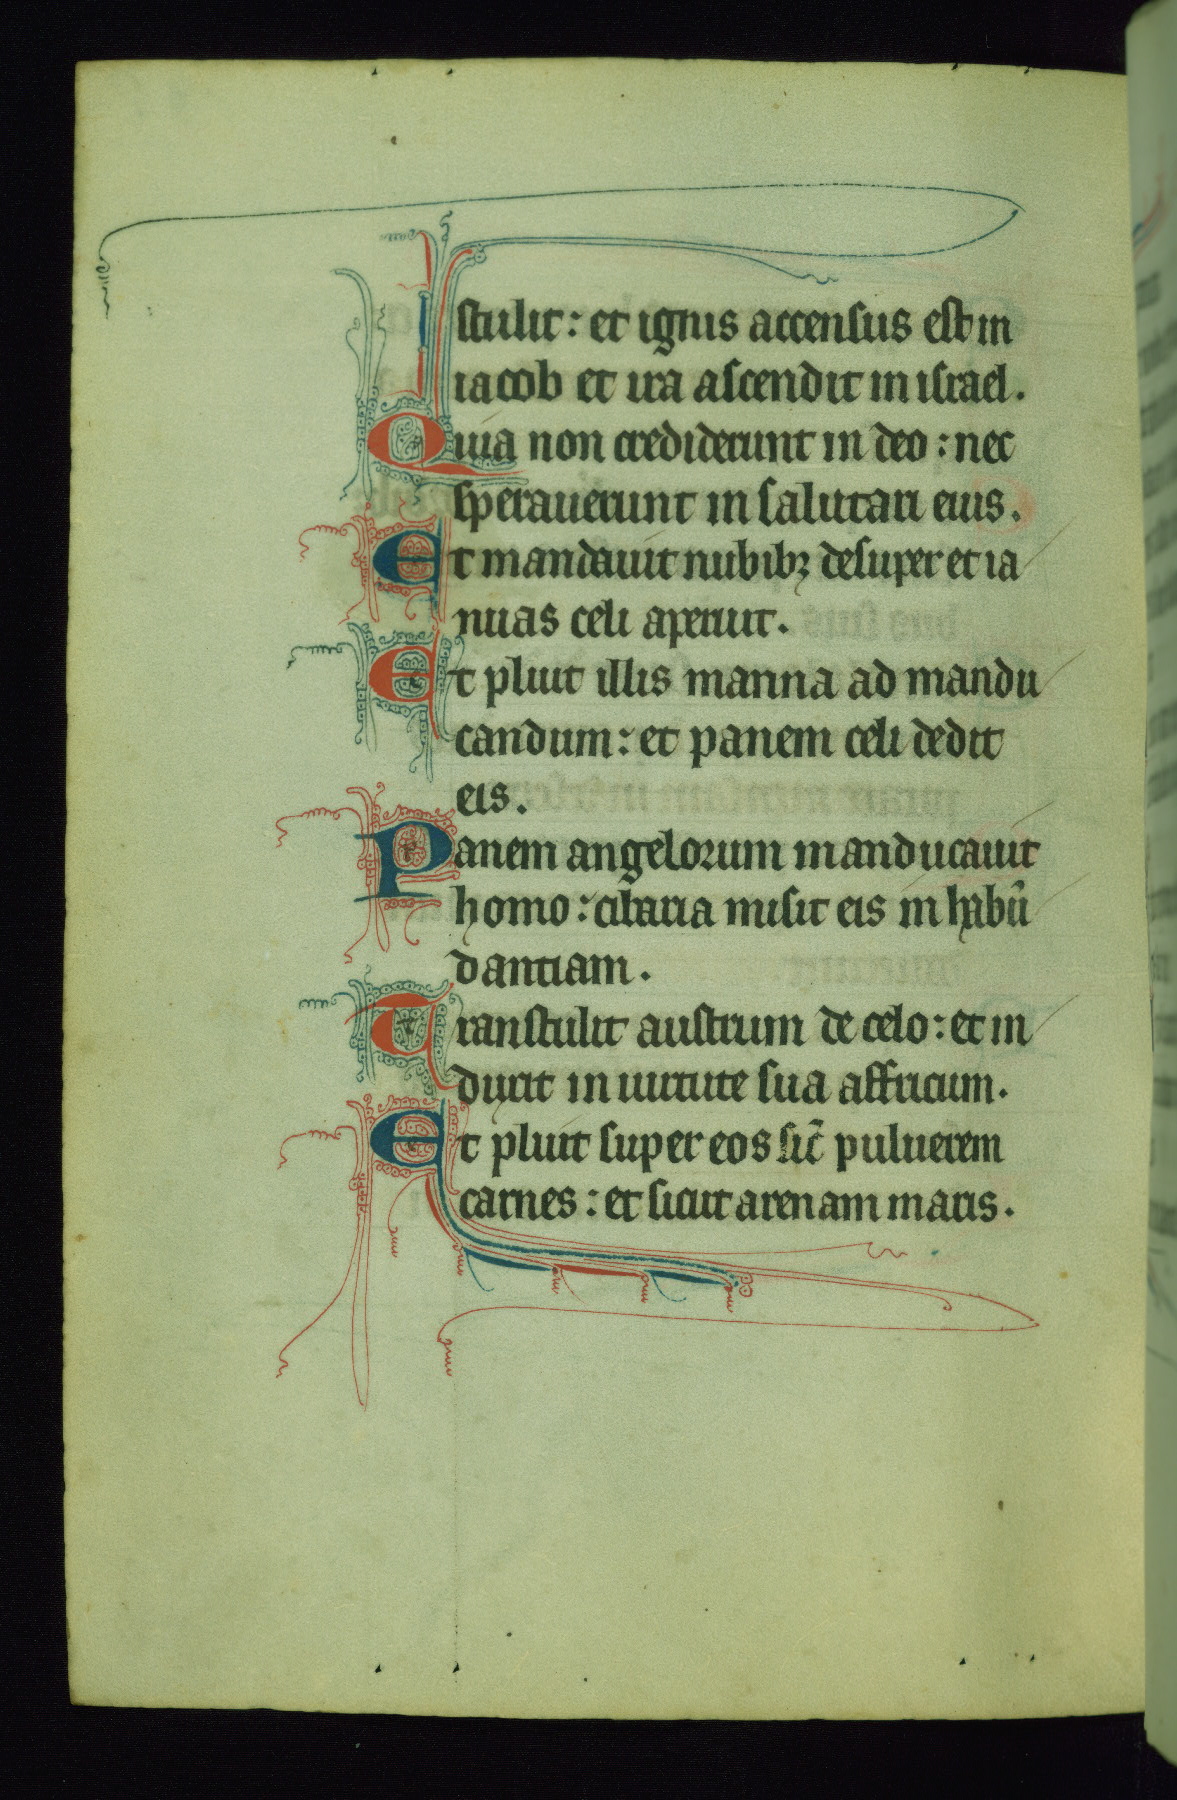 stulit: et ignis accensus est in
iacob et ira ascendit in israel.
Quia non crediderunt in deo: nec
sperauerunt in salutari eius.
Et mandauit nubibꝫ desuper et ia
nuas celi aperuit.
Et pluit illis manna ad mandu
candum: et panem celi dedit
eis.
Panem angelorum manducauit
homo: cibaria misit eis in habũ
dantiam.
Transtulit austrum de celo: et in
duxit in uirtute sua affricum.
Et pluit super eos sic̃ puluerem
carnes: et sicut arenam maris.